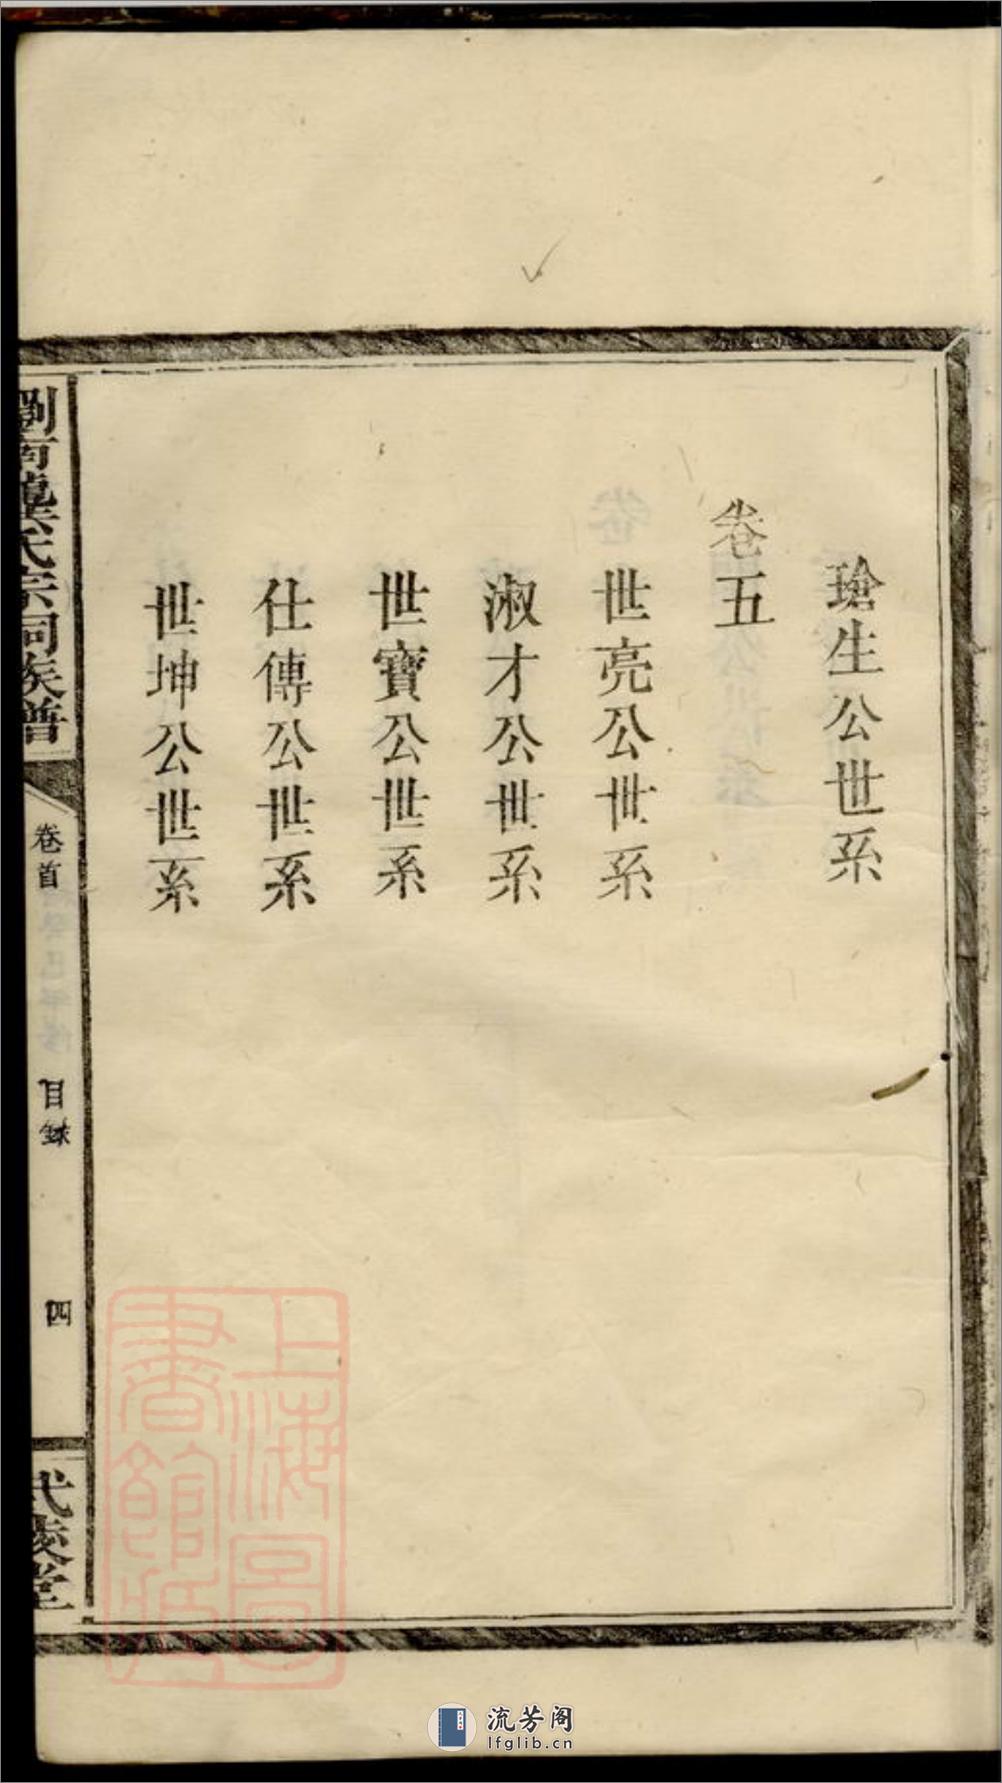 瑲生公世系
卷五
世亮公世系
淑才公世系
世寶公世系
仕傳公世系
世坤公世系
瀏南龔氏宗祠族譜
卷首
目錄
四
武陵堂
上海圖書館藏
流芳阁
lfglib.cn